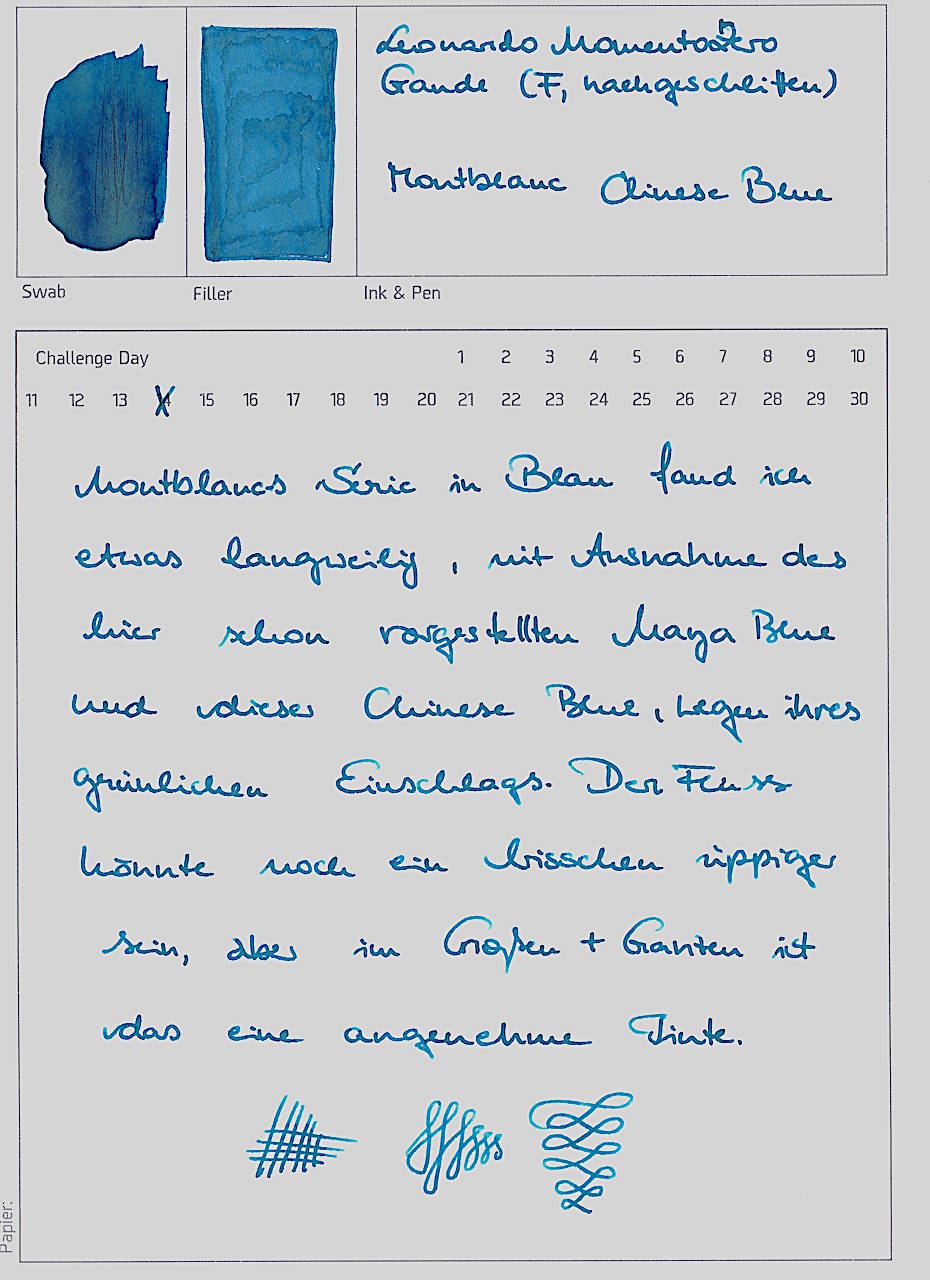 Leonardo Momento Zero
Gande (F, nachgeschliffen)
Montblanc Chinese Blue
Swab
Filler
Ink & Pen
Challenge Day 1 2 3 4 5 6 7 8 9 10
11 12 13 14 15 16 17 18 19 20 21 22 23 24 25 26 27 28 29 30
Montblancs Serie in Blau fand ich
etwas langweilig, mit Ausnahme des
hier schon vorgestellten Maya Blue
und dieses Chinese Blue, wegen ihres
grünlichen Einschlags. Der Fluss
könnte noch ein bisschen üppiger
sein, aber im Großen + Ganzen ist
das eine angenehme Tinte.
Papier: